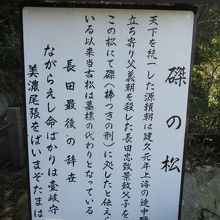 磔の松
天下を統一した源頼朝は建久元年上洛の途中
立ち寄り父義朝を殺した長田忠致景致父子を
この松にて磔(棒つきの刑)に処したと伝え
いる以来当古松は墓標の代わりとなっている
長田最後の辞世
ながらえし命ばかりは壹岐守
美濃尾張をばいまぞたまは